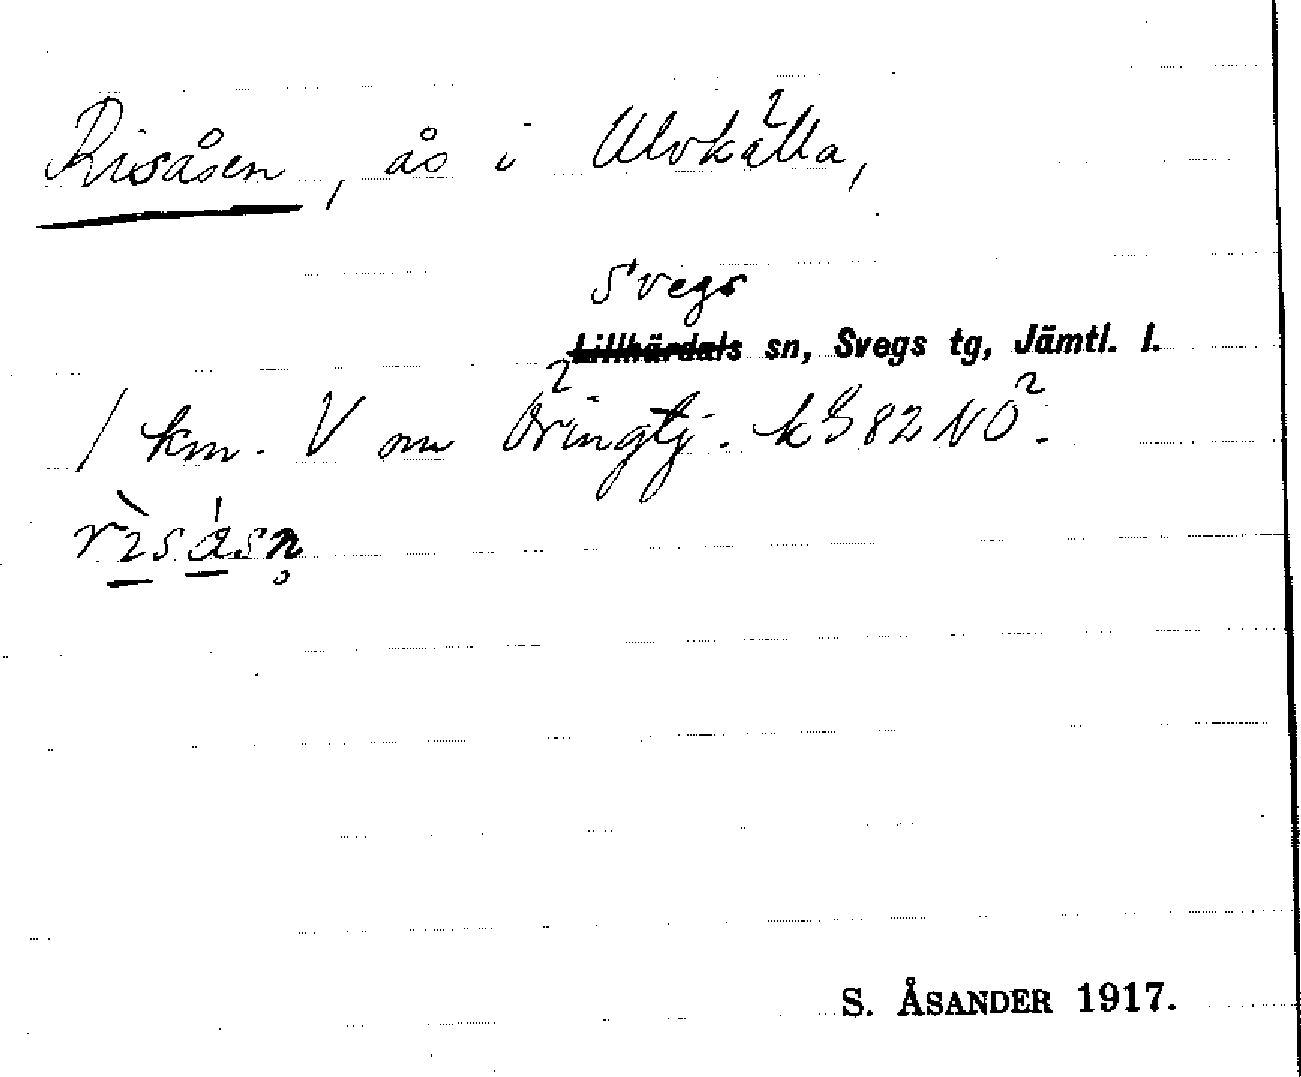 Risåsen, ås i Ulvkälla,
Svegs
Lillhärdals sn, Svegs tg, Jämtl. l.
1 km. V om Öringtj. k S 82 NÖ.
rìsåsn̥
S. ÅSANDER 1917.